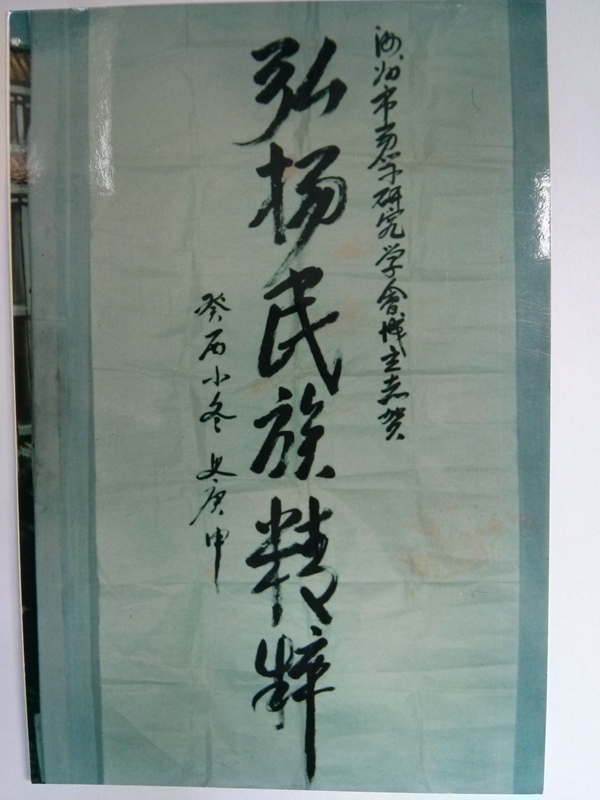 州市易学研究学會成立志贺
弘扬民族精粹
癸酉小冬 史庚申